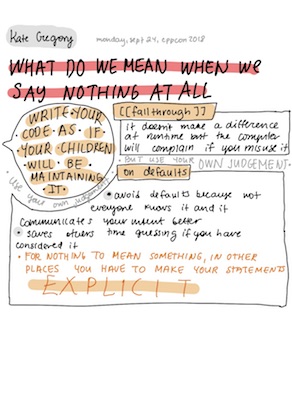 Kate Gregory
monday, sept 24, cppcon 2018
WHAT DO WE MEAN WHEN WE
SAY NOTHING AT ALL
WRITE YOUR
CODE AS IF
YOUR CHILDREN
WILL BE
MAINTAINING
IT
• use your own judgement
[[fallthrough]]
it doesn't make a difference
at runtime but the compiler
will complain if you misuse it
• BUT USE YOUR OWN JUDGEMENT •
on defaults
• avoid defaults because not
everyone knows it and it
communicates your intent better
• saves others time guessing if you have
considered it
• FOR NOTHING TO MEAN SOMETHING, IN OTHER
PLACES YOU HAVE TO MAKE YOUR STATEMENTS
EXPLICIT